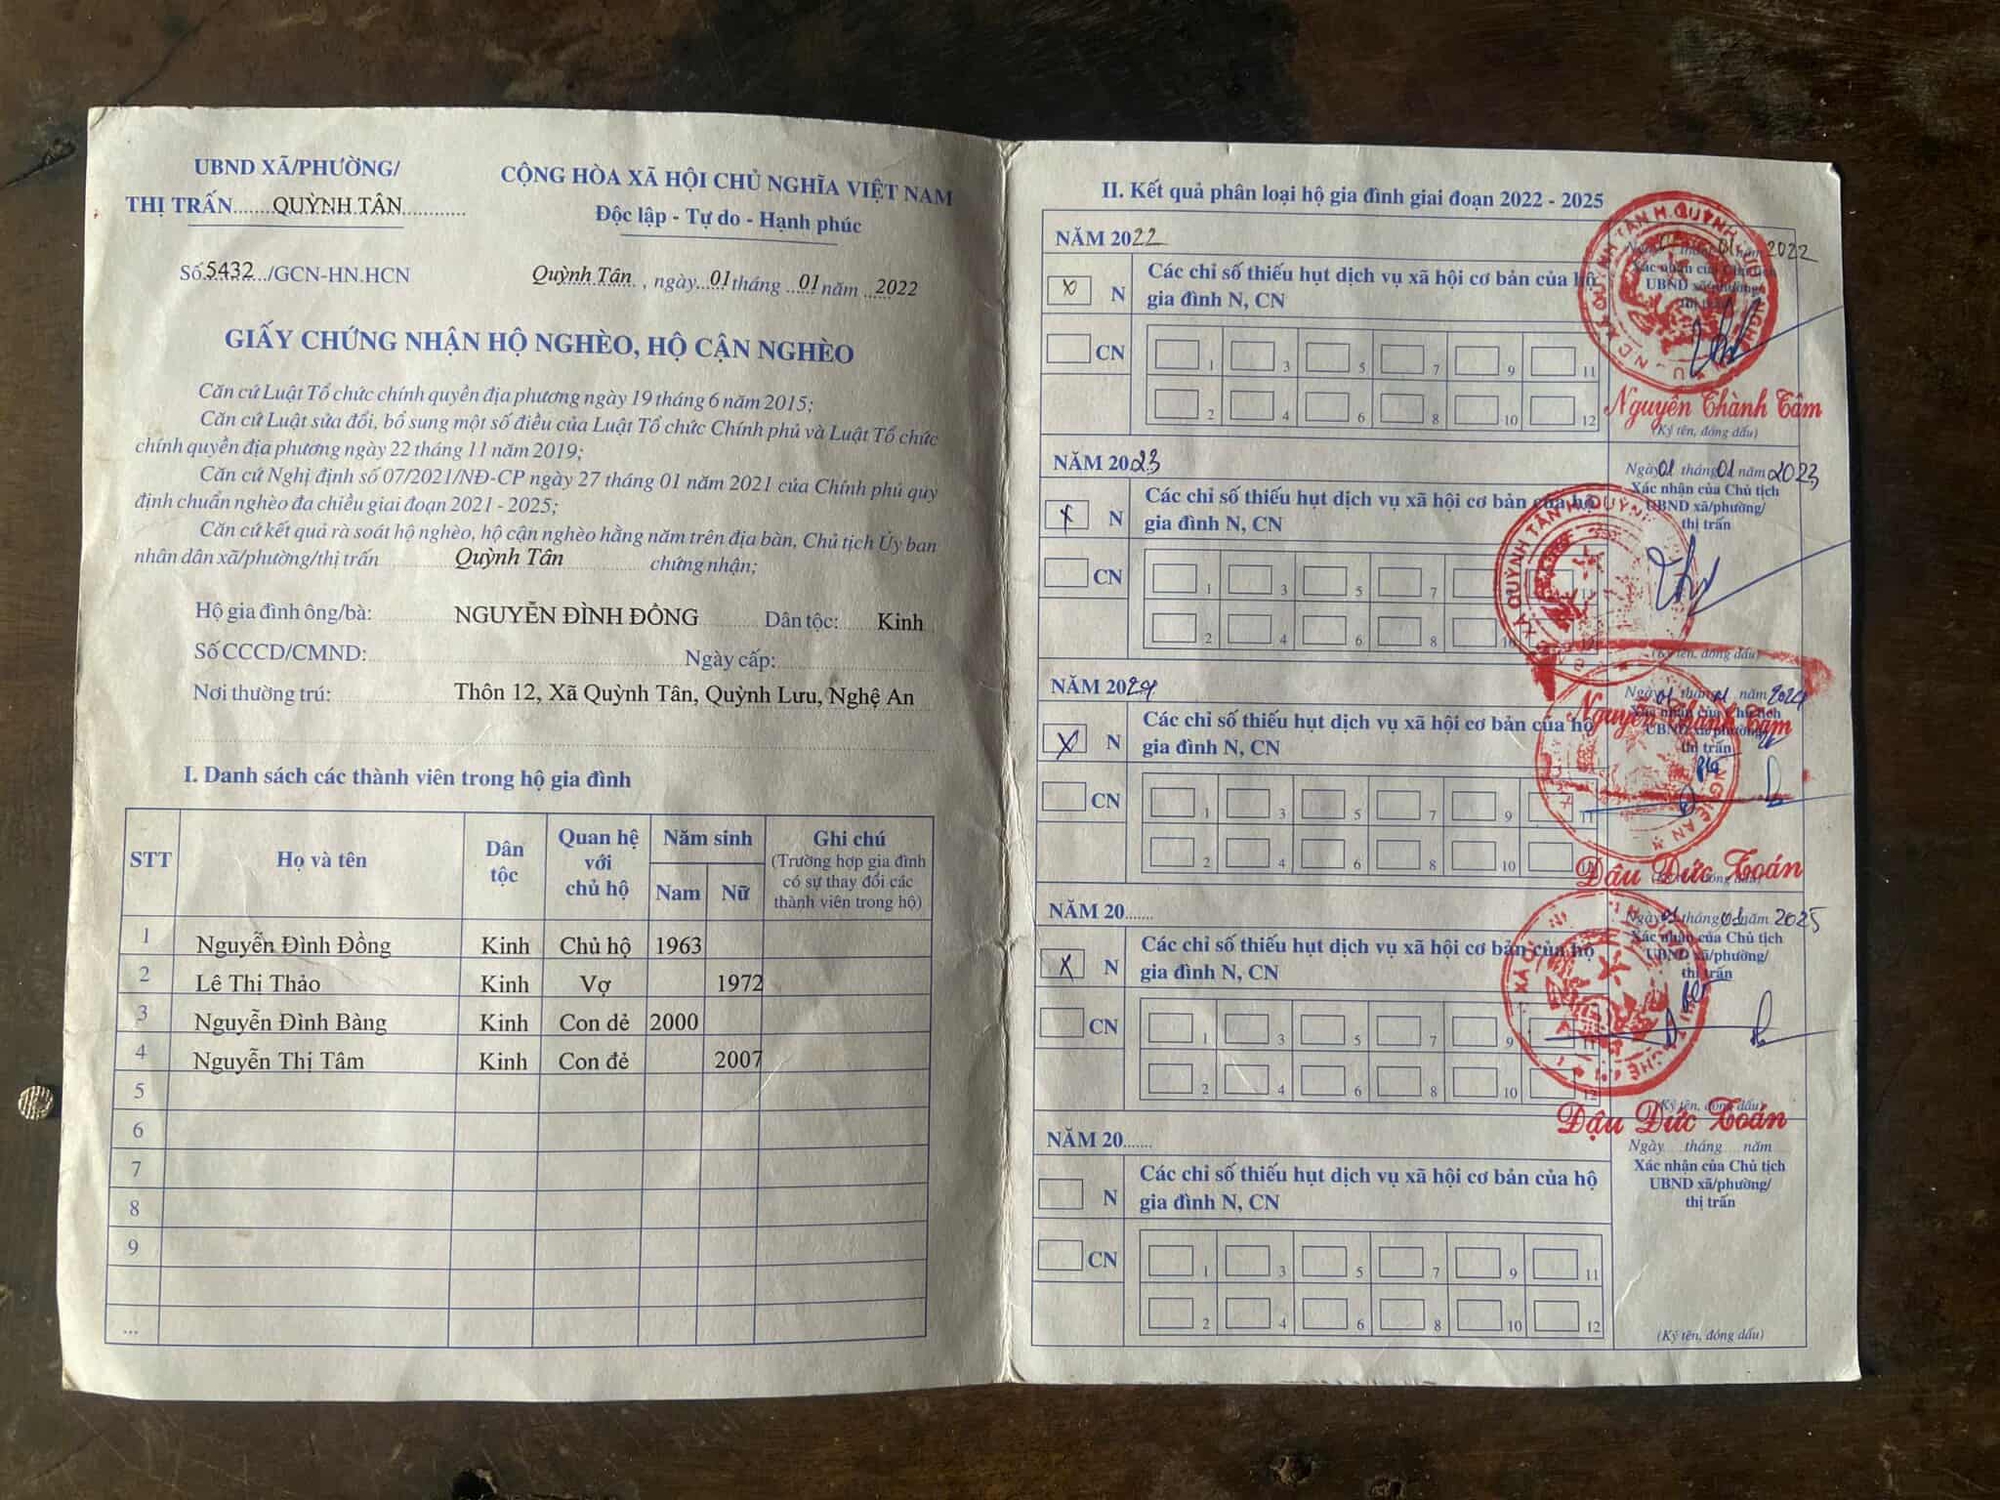 UBND XÃ/PHƯỜNG/
THỊ TRẤN......QUỲNH TÂN............
CỘNG HÒA XÃ HỘI CHỦ NGHĨA VIỆT NAM
Độc lập - Tự do - Hạnh phúc
Số 5432 /GCN-HN.HCN
Quỳnh Tân , ngày 01 tháng 01 năm 2022
GIẤY CHỨNG NHẬN HỘ NGHÈO, HỘ CẬN NGHÈO
Căn cứ Luật Tổ chức chính quyền địa phương ngày 19 tháng 6 năm 2015;
Căn cứ Luật sửa đổi, bổ sung một số điều của Luật Tổ chức Chính phủ và Luật Tổ chức
chính quyền địa phương ngày 22 tháng 11 năm 2019;
Căn cứ Nghị định số 07/2021/NĐ-CP ngày 27 tháng 01 năm 2021 của Chính phủ quy
định chuẩn nghèo đa chiều giai đoạn 2021 - 2025;
Căn cứ kết quả rà soát hộ nghèo, hộ cận nghèo hằng năm trên địa bàn, Chủ tịch Ủy ban
nhân dân xã/phường/thị trấn Quỳnh Tân chứng nhận;
Hộ gia đình ông/bà: NGUYỄN ĐÌNH ĐỒNG Dân tộc: Kinh
Số CCCD/CMND: Ngày cấp:
Nơi thường trú: Thôn 12, Xã Quỳnh Tân, Quỳnh Lưu, Nghệ An
I. Danh sách các thành viên trong hộ gia đình
STT Họ và tên Dân tộc Quan hệ với chủ hộ Năm sinh Nam Nữ Ghi chú (Trường hợp gia đình có sự thay đổi các thành viên trong hộ)
1 Nguyễn Đình Đồng Kinh Chủ hộ 1963
2 Lê Thị Thảo Kinh Vợ 1972
3 Nguyễn Đình Bàng Kinh Con đẻ 2000
4 Nguyễn Thị Tâm Kinh Con đẻ 2007
5
6
7
8
9
...
II. Kết quả phân loại hộ gia đình giai đoạn 2022 - 2025
NĂM 2022
tháng 01 năm 2022
Xác nhận của Chủ tịch
UBND xã/phường/
thị trấn
X N Các chỉ số thiếu hụt dịch vụ xã hội cơ bản của hộ
gia đình N, CN
CN 1 3 5 7 9 11
2 4 6 8 10 12
Nguyễn Thành Tâm
(Ký tên, đóng dấu)
NĂM 2023
Ngày 01 tháng 01 năm 2023
Xác nhận của Chủ tịch
UBND xã/phường/
thị trấn
X N Các chỉ số thiếu hụt dịch vụ xã hội cơ bản của hộ
gia đình N, CN
CN 1 3 5 7 11
2 4 6 8 10 12
(Ký tên, đóng dấu)
Nguyễn Thành Tâm
NĂM 2024
Ngày 01 tháng 01 năm 2024
Xác nhận của Chủ tịch
UBND xã/phường/
thị trấn
X N Các chỉ số thiếu hụt dịch vụ xã hội cơ bản của hộ
gia đình N, CN
CN 1 3 5 7 9 11
2 4 6 8 10
Đậu Đức Toán
NĂM 20.......
Ngày 01 tháng 01 năm 2025
Xác nhận của Chủ tịch
UBND xã/phường/
thị trấn
X N Các chỉ số thiếu hụt dịch vụ xã hội cơ bản của hộ
gia đình N, CN
CN 1 3 5 7 9 11
2 4 6 8 10 12
(Ký tên, đóng dấu)
Đậu Đức Toán
NĂM 20.......
Ngày tháng năm
Xác nhận của Chủ tịch
UBND xã/phường/
thị trấn
N Các chỉ số thiếu hụt dịch vụ xã hội cơ bản của hộ
gia đình N, CN
CN 1 3 5 7 9 11
2 4 6 8 10 12
(Ký tên, đóng dấu)